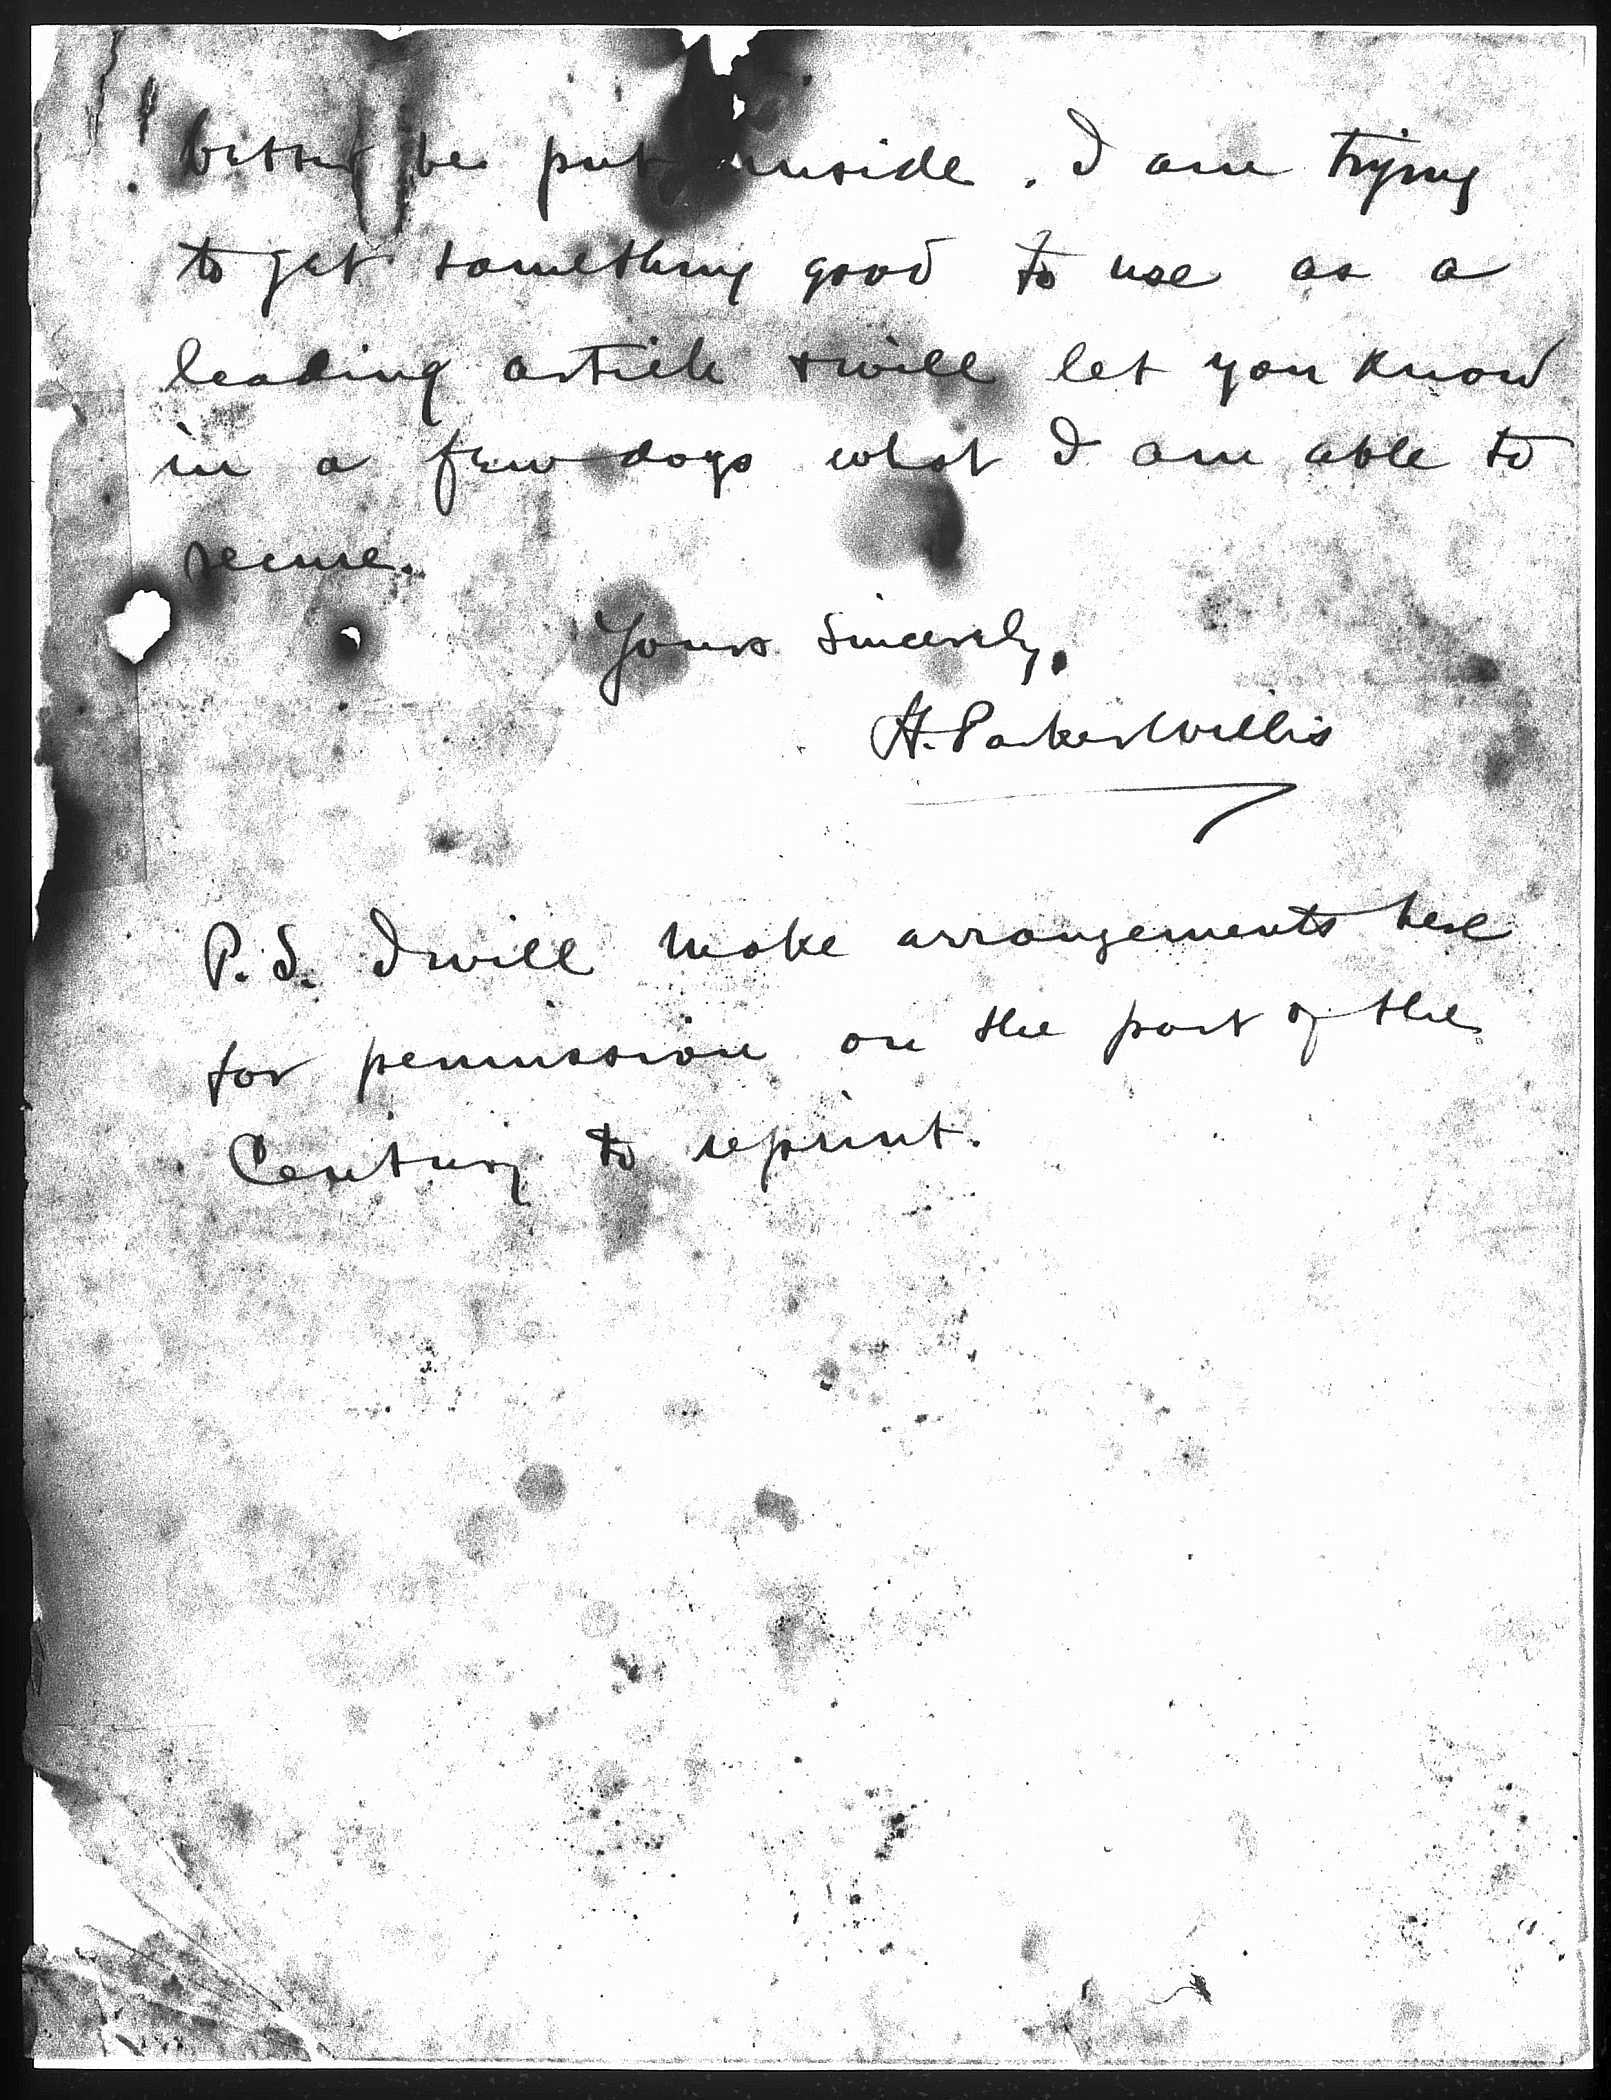 better be put inside. I am trying
to get something good to use as a
leading article & will let you know
in a few days what I am able to
secure.
Yours sincerely,
H. Parker Willis
P.S. I will make arrangements here
for permission on the part of the
Century to reprint.